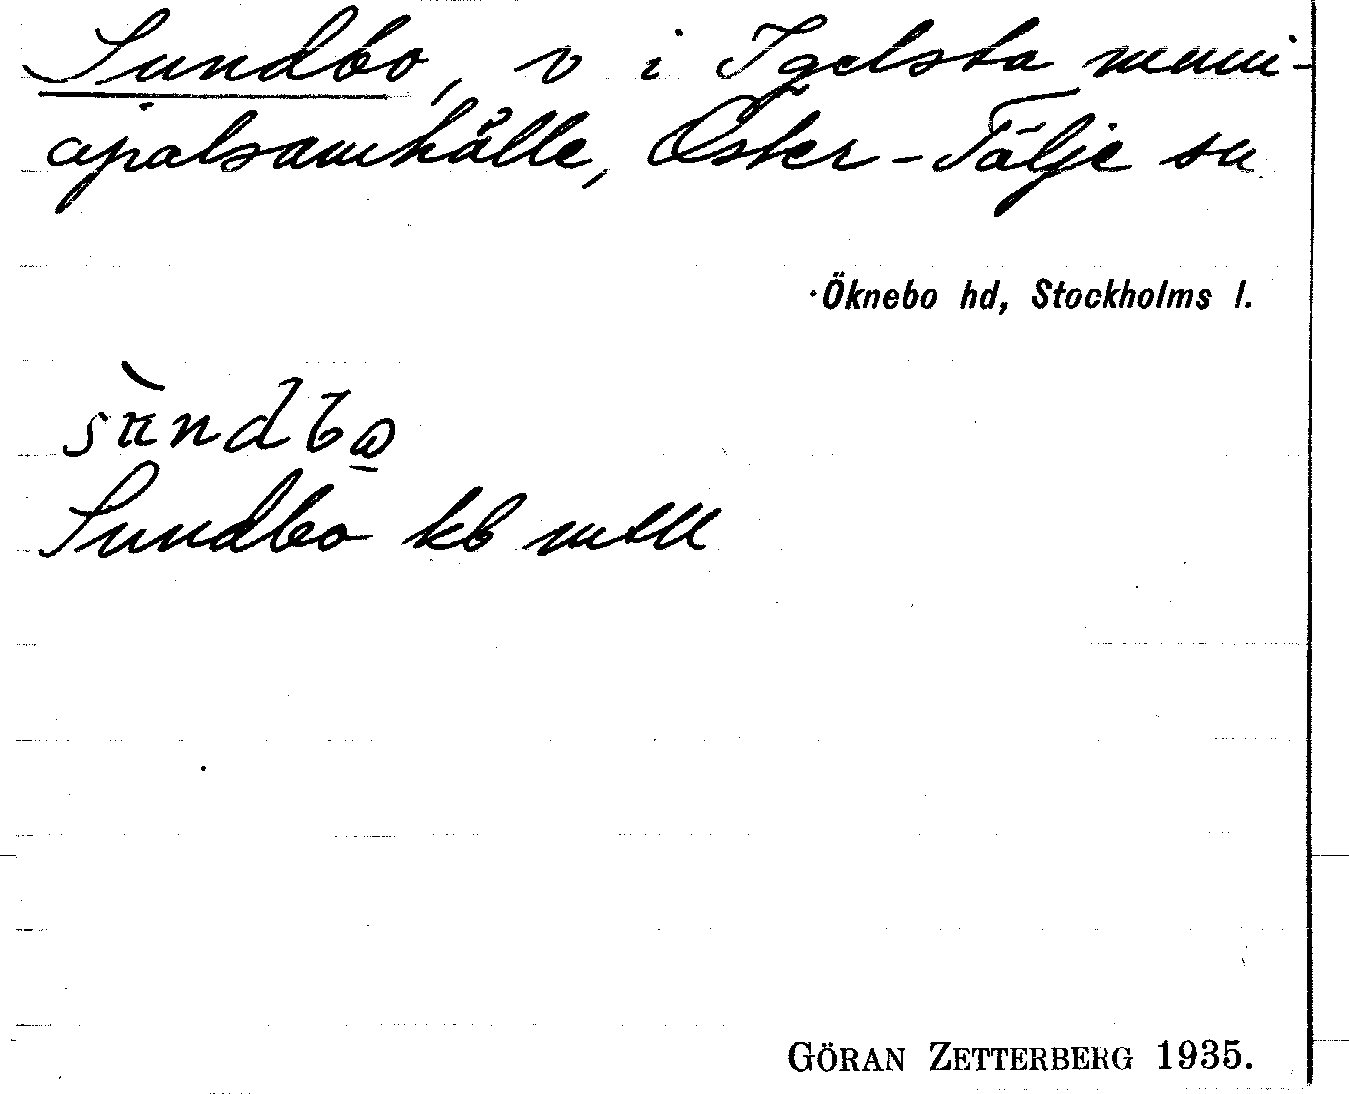 Sundbo, v i Igelsta muni-
cipalsamhälle, Öster-Tälje sn
Öknebo hd, Stockholms l.
Sundbo kb mtll
GÖRAN ZETTERBERG 1935.